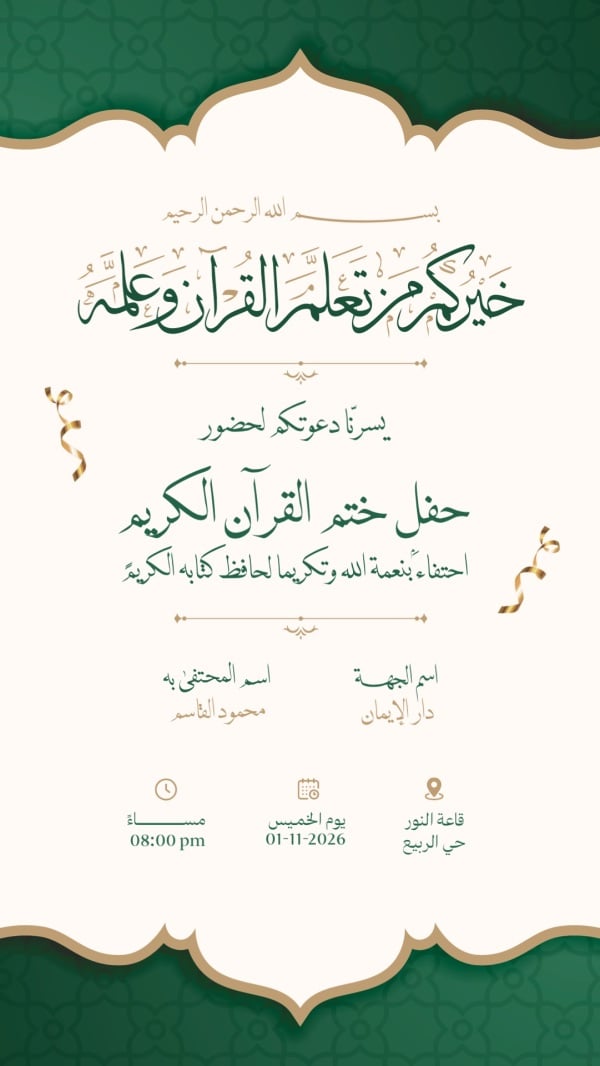 بسم الله الرحمن الرحيم
خَيْرُكُمْ مَنْ تَعَلَّمَ الْقُرْآنَ وَعَلَّمَهُ
يسرنّا دعوتكم لحضور
حفل ختم القرآن الكريم
احتفاءً بنعمة الله وتكريما لحافظ كتابه الكريم
اسم الجهة
دار الإيمان
اسم المحتفىٰ به
محمود القاسم
قاعة النور
حي الربيع
يوم الخميس
01-11-2026
مساءً
08:00 pm